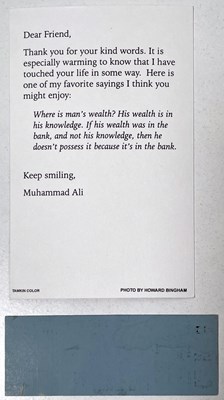 Dear Friend,
Thank you for your kind words. It is
especially warming to know that I have
touched your life in some way.  Here is
one of my favorite sayings I think you
might enjoy:
Where is man's wealth? His wealth is in
his knowledge. If his wealth was in the
bank, and not his knowledge, then he
doesn't possess it because it's in the bank.
Keep smiling,
Muhammad Ali
TAMKIN COLOR
PHOTO BY HOWARD BINGHAM